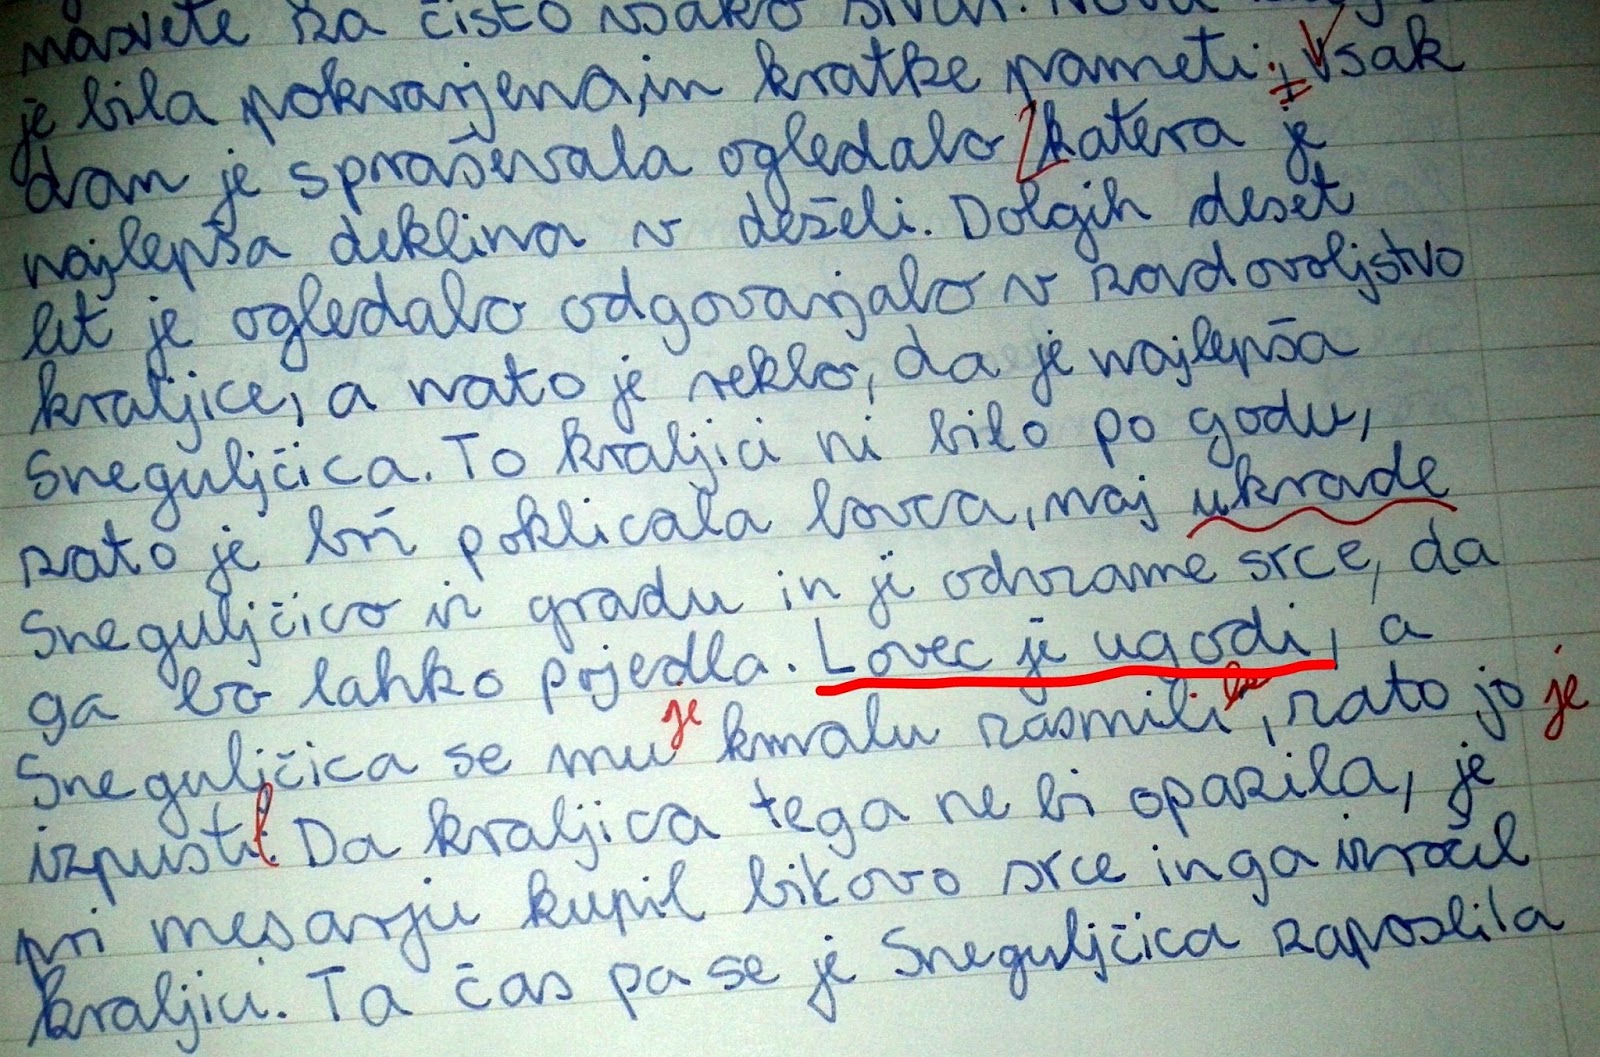 nasvete za čisto vsako stvar.
je bila pokvarjena, in kratke pameti. Vsak
dan je spraševala ogledalo katera je
najlepša deklina v deželi. Dolgih deset
let je ogledalo odgovarjalo v zadovoljstvo
kraljice, a nato je reklo, da je najlepša
Sneguljčica. To kraljici ni bilo po godu,
zato je brž poklicala lovca, naj ukrade
Sneguljčico iz gradu in ji odvzame srce, da
ga bo lahko pojedla. Lovec je ugodi, a
Sneguljčica se mu je kmalu zasmili la, zato jo je
izpustil. Da kraljica tega ne bi opazila, je
pri mesarju kupil bikovo srce in ga izročil
kraljici. Ta čas pa se je Sneguljčica zaposlila